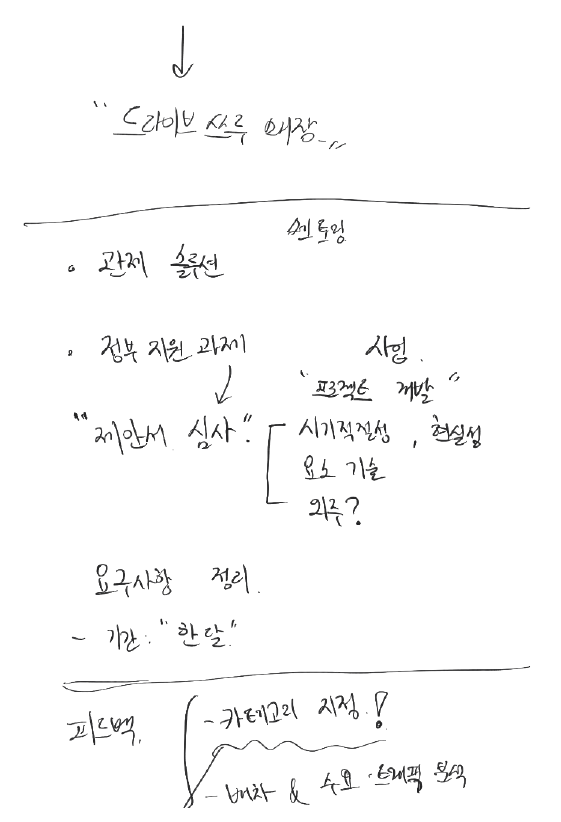 “드라이브 쓰루 매장”
멘토링
• 관제 솔루션
• 정부 지원 과제
사업.
“프로젝트 개발”
“제안서 심사”.
시기적절성, 현실성
요소 기술
외주?
요구사항 정리.
- 기간 : “한달”
피드백.
- 카테고리 지정!
- 배차 & 수요·트래픽 분석